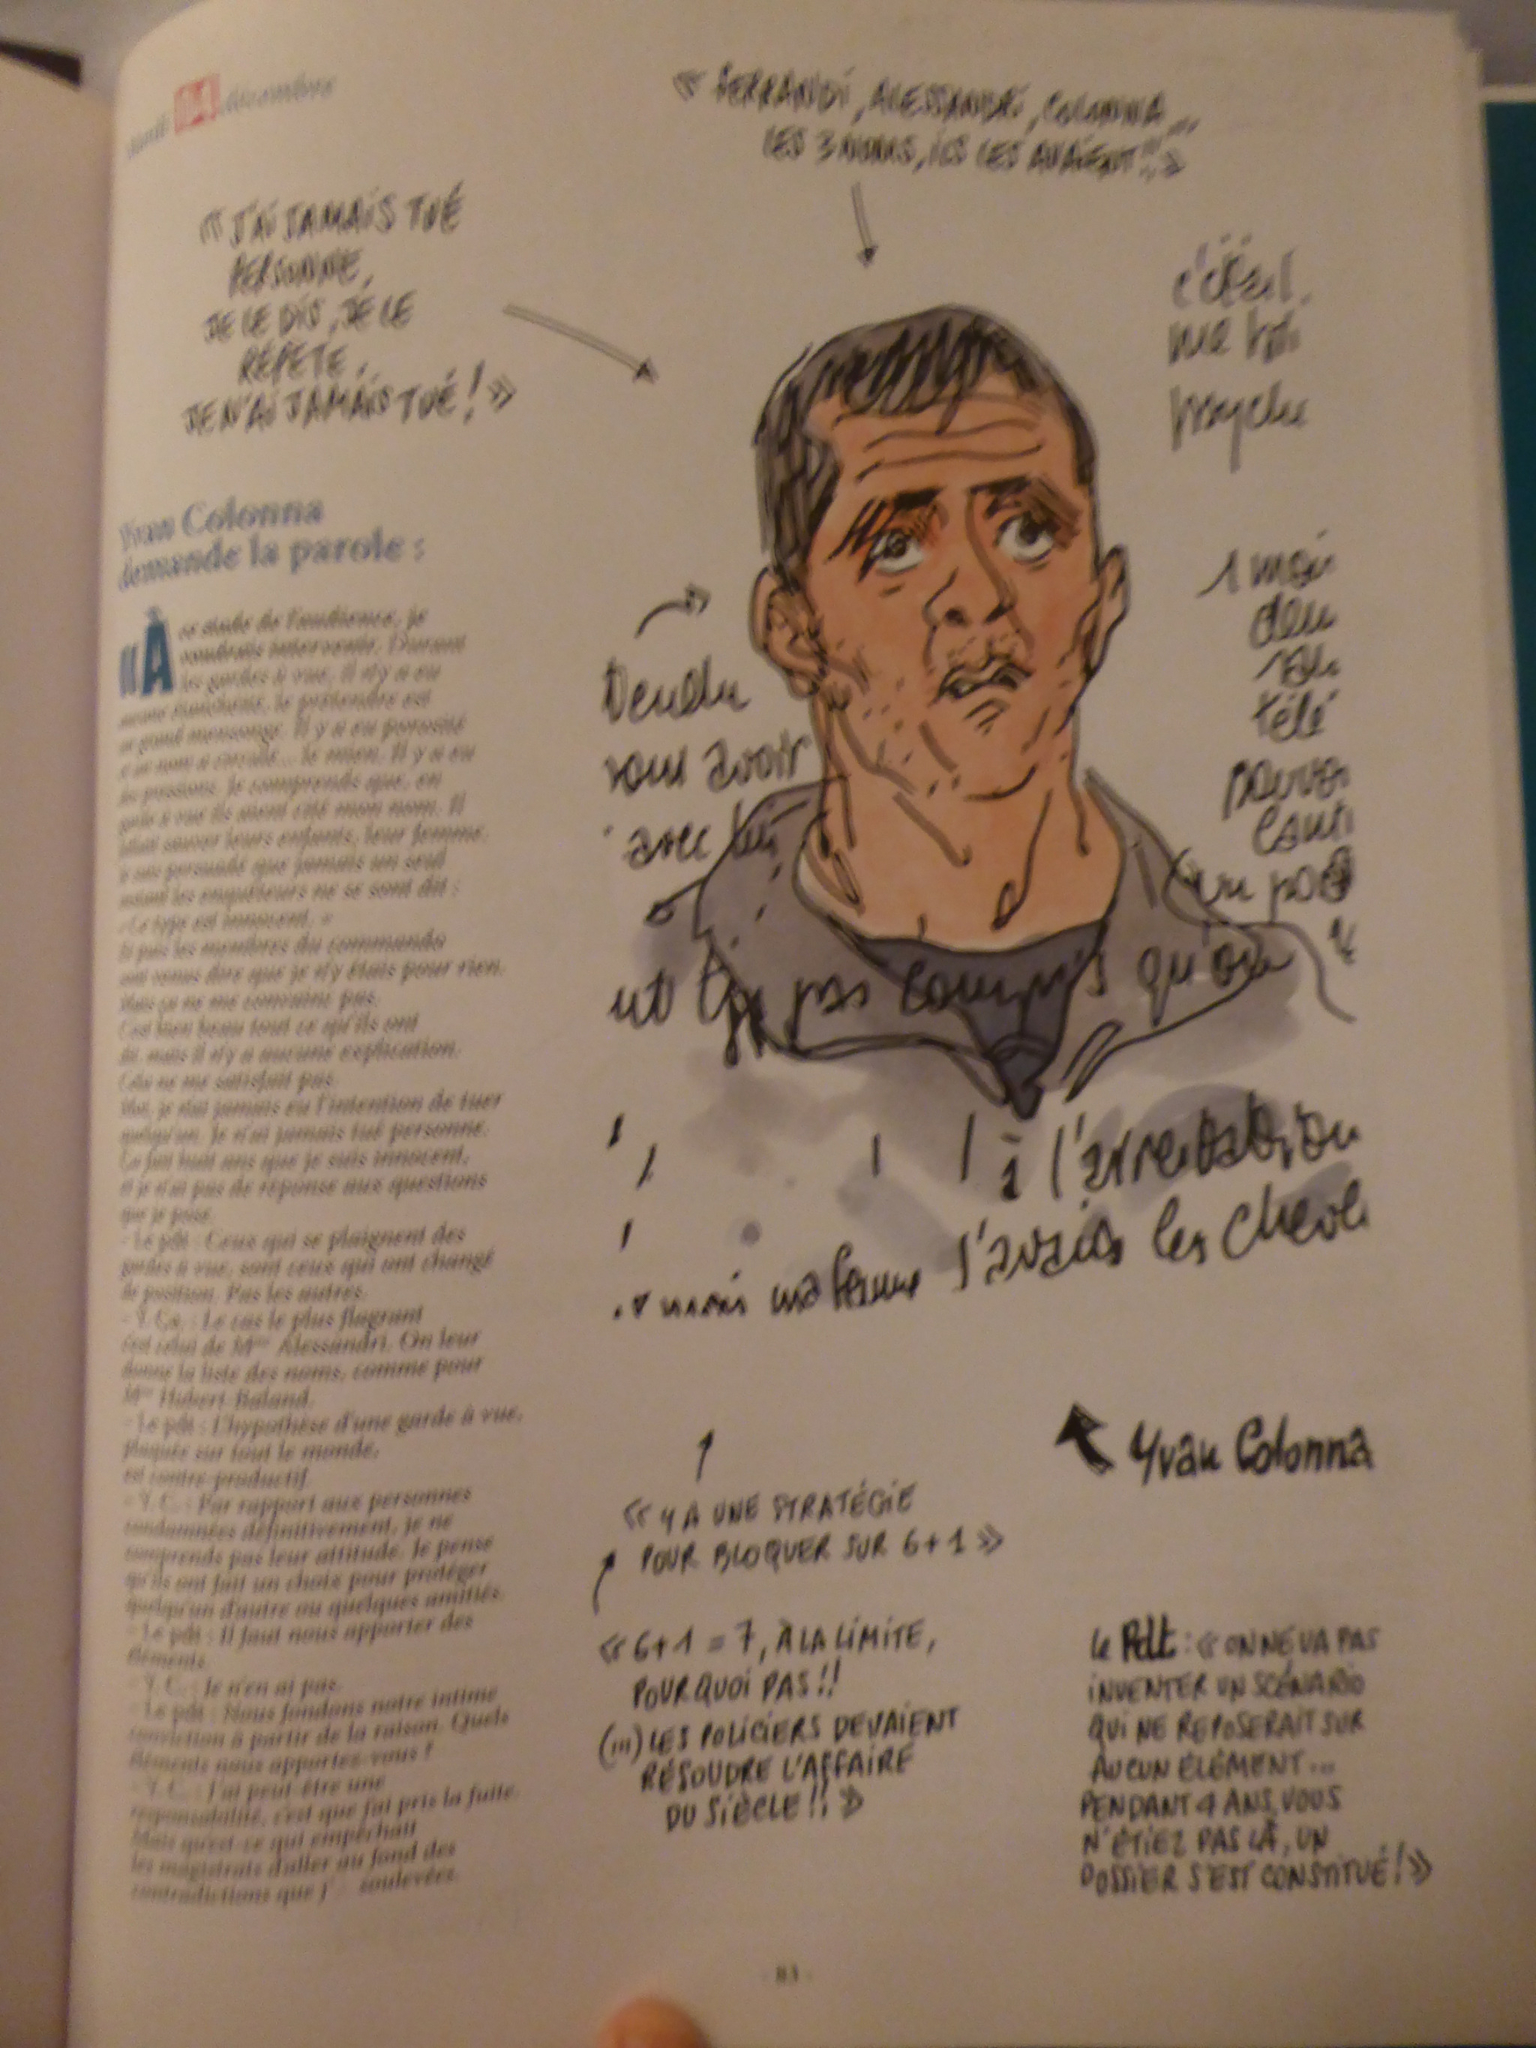 14 décembre
« FERRANDI, ALESSANDRI, COLONNA...
LES 3 NOMS, ILS LES AVAIENT!!, »
« J'AI JAMAIS TUÉ
PERSONNE,
JE LE DIS, JE LE
RÉPÈTE,
JE N'AI JAMAIS TUÉ! »
Yvan Colonna
demande la parole :
"À ce stade de l'audience, je
voudrais intervenir. Durant
les gardes à vue, il n'y a eu
aucune étanchéité, le prétendre est
un grand mensonge. Il y a eu porosité
un nom a circulé... le mien. Il y a eu
des pressions. Je comprends que, en
garde à vue ils aient cité mon nom. Il
fallait sauver leurs enfants, leur femme.
persuadé que jamais un seul
instant les enquêteurs ne se sont dit :
« Le type est innocent. »
les membres du commando
sont venus dire que je n'y étais pour rien.
Mais ça ne me convainc pas.
C'est bien beau tout ce qu'ils ont
dit, mais il n'y a aucune explication.
Cela ne me satisfait pas.
Moi, je n'ai jamais eu l'intention de tuer
quelqu'un. Je n'ai jamais tué personne.
Ça fait huit ans que je suis innocent,
et je n'ai pas de réponse aux questions
que je pose.
- Le pdt : Ceux qui se plaignent des
gardes à vue, sont ceux qui ont changé
de position. Pas les autres.
- Y. Co. : Le cas le plus flagrant
c'est celui de Mme Alessandri. On leur
donne la liste des noms, comme pour
Mme Hubert-Baland.
- Le pdt : L'hypothèse d'une garde à vue,
plaquée sur tout le monde,
est contre-productif.
- Y. C. : Par rapport aux personnes
condamnées définitivement, je ne
comprends pas leur attitude. Je pense
qu'ils ont fait un choix pour protéger
quelqu'un d'autre ou quelques amitiés.
- Le pdt : Il faut nous apporter des
éléments.
- Y. C. : Je n'en ai pas.
- Le pdt : Nous fondons notre intime
conviction à partir de la raison. Quels
éléments nous apportez-vous ?
- Y. C. : J'ai peut-être une
responsabilité, c'est que j'ai pris la fuite.
Mais qu'est-ce qui empêchait
les magistrats d'aller au fond des
contradictions que j' soulevées.
psyche
1 moi
deu
télé
pouvoi
vendu
vous avoir
avec lui
pas compris qu'on
à l'arrestation
mais ma femme j'avais les cheve
Yvan Colonna
« Y A UNE STRATÉGIE
POUR BLOQUER SUR 6+1 »
« 6+1 = 7, À LA LIMITE,
POURQUOI PAS!!
(...) LES POLICIERS DEVAIENT
RÉSOUDRE L'AFFAIRE
DU SIÈCLE!!, »
le Pdt : « ON NE VA PAS
INVENTER UN SCÉNARIO
QUI NE REPOSERAIT SUR
AUCUN ÉLÉMENT...
PENDANT 4 ANS, VOUS
N'ÉTIEZ PAS LÀ, UN
DOSSIER S'EST CONSTITUÉ! »
- 83 -